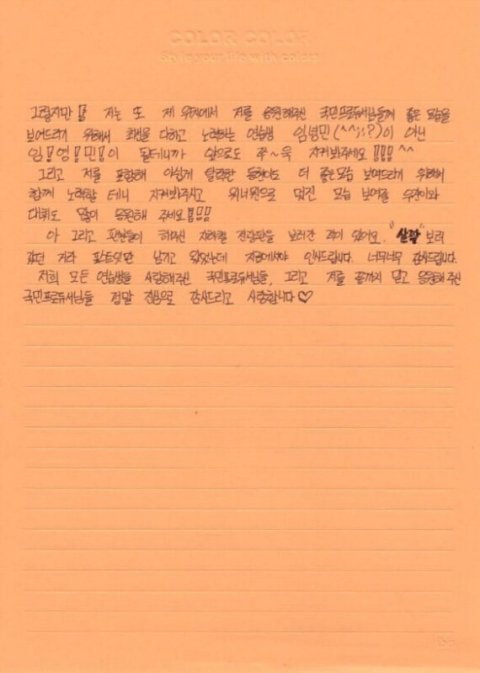 COLOR COLOR
Style your life with colors
그렇지만!! 저는 또 제 위치에서 저를 응원해주신 국민프로듀서님들께 좋은 모습을
보여드리기 위해서 최선을 다하고 노력하는 연습생 임영민(^^;;?)이 아닌
임!영!민!이 될테니까 앞으로도 쭈~욱 지켜봐주세요!!! ^^
그리고 저를 포함해 아쉽게 탈락한 동현이도 더 좋은모습 보여드리기 위해서
함께 노력할 테니 지켜봐주시고 워너원으로 멋진 모습 보여줄 우진이와
대휘도 많이 응원해 주세요!!!
아 그리고 팬분들이 해주신 지하철 전광판을 보러간 적이 있어요. "살짝" 보러
갔던 거라 포스트잇만 남기고 왔었는데 지금에서야 인사드립니다. 너무너무 감사드립니다.
저희 모든 연습생들 사랑해주신 국민프로듀서님들, 그리고 저를 끝까지 믿고 응원해주신
국민프로듀서님들 정말 진심으로 감사드리고 사랑합니다♡